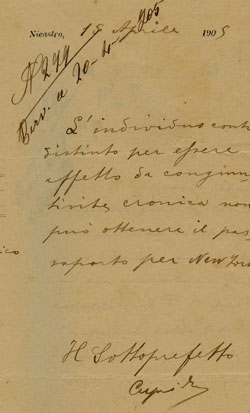 Nicastro, 18 Aprile 1905
N 299
Ricev. a 20-4-905
L'individuo cont
distinto per essere
affetto da congiun
tivite cronica non
può ottenere il pas
saporto per New York
ico
Il Sottoprefetto